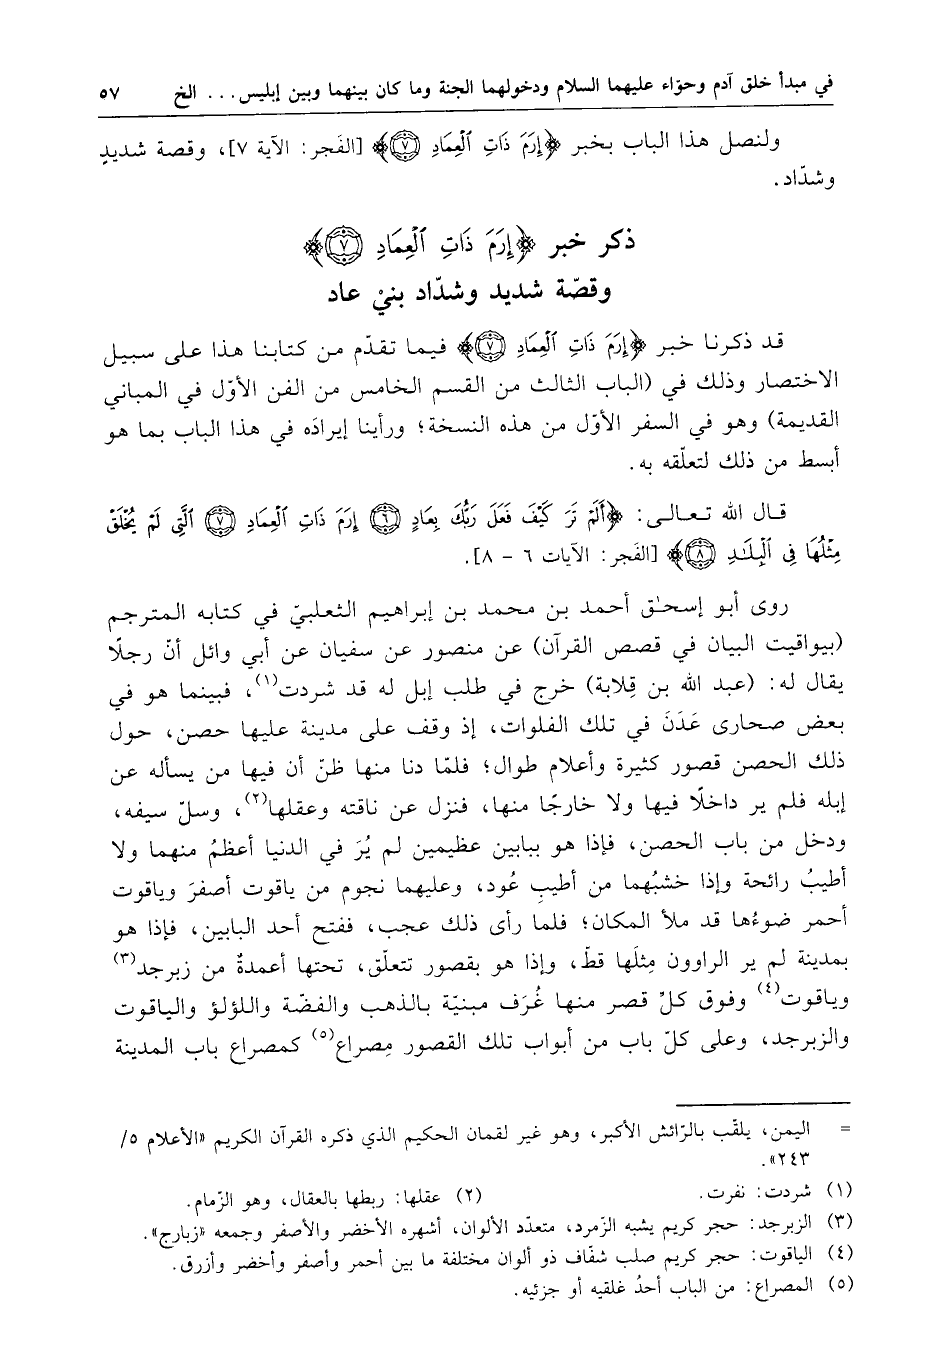 في مبدأ خلق آدم وحوّاء عليهما السلام ودخولهما الجنة وما كان بينهما وبين إبليس... الخ ٥٧
ولنصل هذا الباب بخبر ﴿إِرَمَ ذَاتِ ٱلْعِمَادِ ٧﴾ [الفَجر: الآية ٧]، وقصة شديدٍ
وشدّاد.
ذكر خبر ﴿إِرَمَ ذَاتِ ٱلْعِمَادِ ٧﴾
وقصّة شديد وشدّاد بنيْ عاد
قد ذكرنا خبر ﴿إِرَمَ ذَاتِ ٱلْعِمَادِ ٧﴾ فيما تقدّم من كتابنا هذا على سبيل
الاختصار وذلك في (الباب الثالث من القسم الخامس من الفن الأوّل في المباني
القديمة) وهو في السفر الأوّل من هذه النسخة؛ ورأينا إيرادَه في هذا الباب بما هو
أبسط من ذلك لتعلّقه به.
قال الله تعالى: ﴿أَلَمْ تَرَ كَيْفَ فَعَلَ رَبُّكَ بِعَادٍ ٦ إِرَمَ ذَاتِ ٱلْعِمَادِ ٧ ٱلَّتِى لَمْ يُخْلَقْ
مِثْلُهَا فِى ٱلْبِلَـٰدِ ٨﴾ [الفَجر: الآيات ٦ - ٨].
روى أبو إسحـٰق أحمد بن محمد بن إبراهيم الثعلبيّ في كتابه المترجم
(بيواقيت البيان في قصص القرآن) عن منصور عن سفيان عن أبي وائل أنّ رجلًا
يقال له: (عبد الله بن قِلابة) خرج في طلب إبل له قد شردت(١)، فبينما هو في
بعض صحارى عَدَنَ في تلك الفلوات، إذ وقف على مدينة عليها حصن، حول
ذلك الحصن قصور كثيرة وأعلام طوال؛ فلمّا دنا منها ظنّ أن فيها من يسأله عن
إبله فلم ير داخلًا فيها ولا خارجًا منها، فنزل عن ناقته وعقلها(٢)، وسلّ سيفه،
ودخل من باب الحصن، فإذا هو ببابين عظيمين لم يُرَ في الدنيا أعظمُ منهما ولا
أطيبُ رائحة وإذا خشبُهما من أطيبِ عُود، وعليهما نجوم من ياقوت أصفرَ وياقوت
أحمر ضوءُها قد ملأ المكان؛ فلما رأى ذلك عجب، ففتح أحد البابين، فإذا هو
بمدينة لم ير الراوون مِثلَها قطّ، وإذا هو بقصور تتعلّق، تحتها أعمدةٌ من زبرجد(٣)
وياقوت(٤) وفوق كلِّ قصر منها غُرَف مبنيّة بالذهب والفضّة واللؤلؤ والياقوت
والزبرجد، وعلى كلّ باب من أبواب تلك القصور مِصراع(٥) كمصراع باب المدينة
= اليمن، يلقّب بالرّائش الأكبر، وهو غير لقمان الحكيم الذي ذكره القرآن الكريم «الأعلام ٥/
٢٤٣».
(١) شردت: نفرت. (٢) عقلها: ربطها بالعقال، وهو الزّمام.
(٣) الزبرجد: حجر كريم يشبه الزّمرد، متعدّد الألوان، أشهره الأخضر والأصفر وجمعه «زبارج».
(٤) الياقوت: حجر كريم صلب شفّاف ذو ألوان مختلفة ما بين أحمر وأصفر وأخضر وأزرق.
(٥) المصراع: من الباب أحدُ غلقيه أو جزئيه.